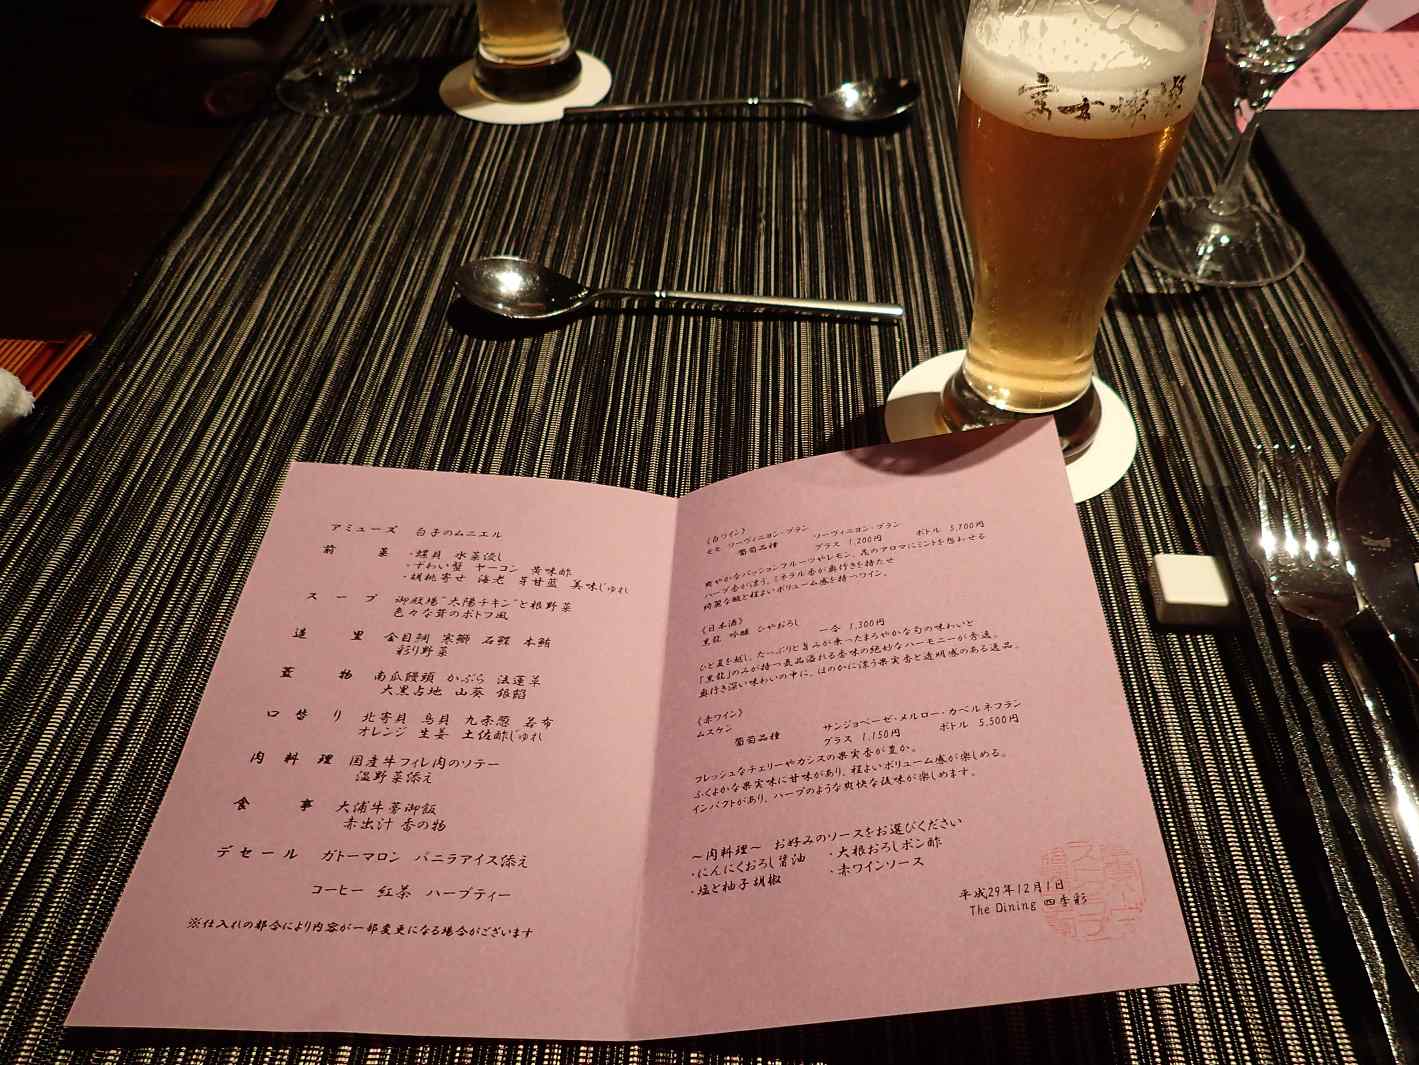 富士桜
アミューズ 白子のムニエル
前菜 ・螺貝 水菜浸し
・ずわい蟹 ヤーコン 黄味酢
・胡桃寄せ 海老 芽甘藍 美味じゅれ
スープ 御殿場"太陽チキン"と根野菜
色々な茸のポトフ風
造里 金目鯛 寒鰤 石鰈 本鮪
彩り野菜
蓋物 南瓜饅頭 かぶら 法蓮草
大黒占地 山葵 銀餡
口替り 北寄貝 鳥貝 九条葱 若布
オレンジ 生姜 土佐酢じゅれ
肉料理 国産牛フィレ肉のソテー
温野菜添え
食事 大浦牛蒡御飯
赤出汁 香の物
デセール ガトーマロン バニラアイス添え
コーヒー 紅茶 ハーブティー
※仕入れの都合により内容が一部変更になる場合がございます
《白ワイン》
モモ ソーヴィニヨン・ブラン
葡萄品種 ソーヴィニヨン・ブラン
グラス 1,200円 ボトル 5,700円
爽やかなパッションフルーツやレモン、花のアロマにミントを想わせる
ハーブ香が漂う。ミネラル香が奥行きを持たせ
綺麗な酸と程よいボリューム感を持つワイン。
《日本酒》
黒龍 吟醸 ひやおろし 一合 1,300円
ひと夏を越し、たっぷりと旨みが乗ったまろやかな旬の味わいと
「黒龍」のみが持つ気品溢れる香味の絶妙なハーモニーが秀逸。
奥行き深い味わいの中に、ほのかに漂う果実香と透明感のある逸品。
《赤ワイン》
ムスケン
葡萄品種 サンジョベーゼ・メルロー・カベルネフラン
グラス 1,150円 ボトル 5,500円
フレッシュなチェリーやカシスの果実香が豊か。
ふくよかな果実味に甘味があり、程よいボリューム感が楽しめる。
インパクトがあり、ハーブのような爽快な後味が楽しめます。
～肉料理～ お好みのソースをお選びください
・にんにくおろし醤油 ・大根おろしポン酢
・塩と柚子胡椒 ・赤ワインソース
平成29年12月1日
The Dining 四季彩